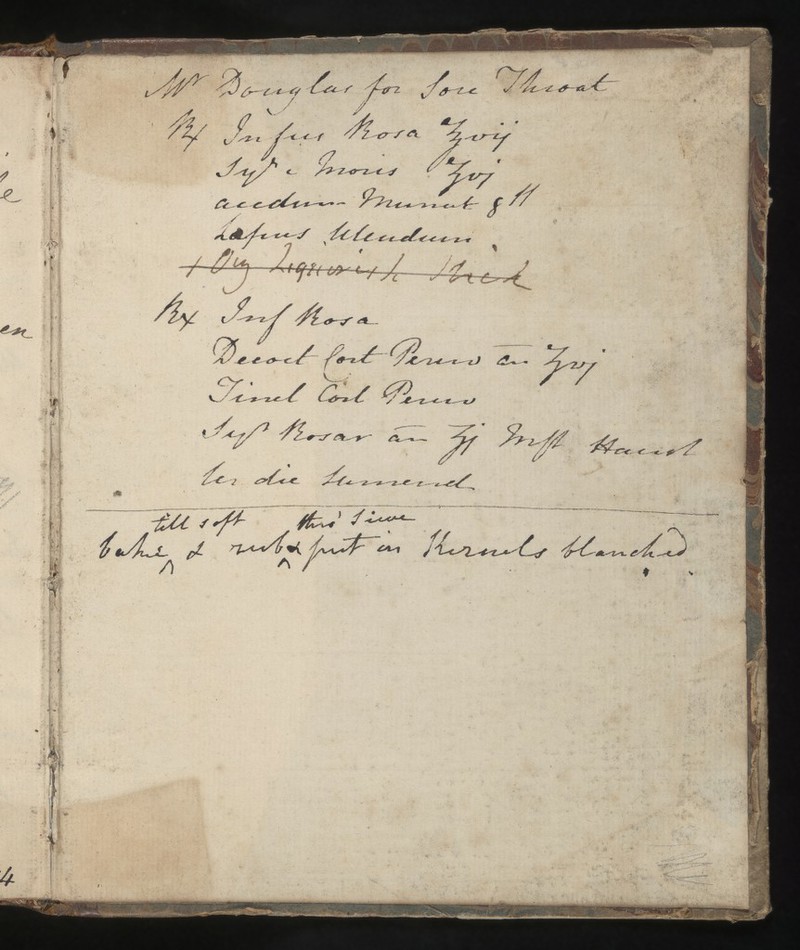 Mr Douglas for Sore Throat
Rx Infus Rosa ℥vij
Syr e Moris ℥vj
Acidum Muriat
Sæpius Utendum
1 Oz Liquorish Stick
Rx Inf Rosa
Decoct Cort Peruv an ℥vj
Tinct Cort Peruv
Syr Rosar an ℥j Mft Haust
ter die sumend
till soft thro' Sieve
bake & rub & put in Kernels blanched
en
4